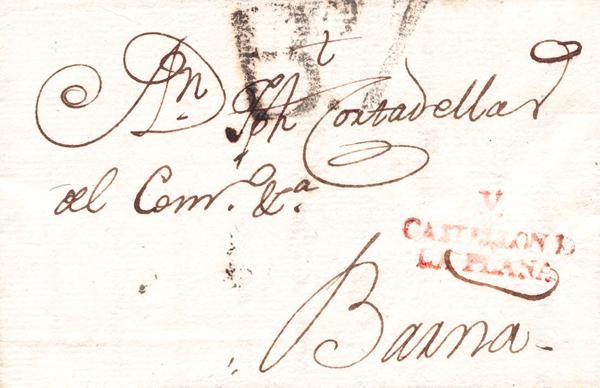 B7
An. D. Jph Cortadellas
del Comr.º &.ª
V.
CASTELLON D
LA PLANA
Barna